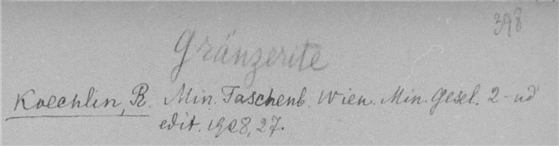 398
Gränzerite
Koechlin, R. Min. Taschenb. Wien. Min. Gesel. 2-nd
edit. 1928, 27.